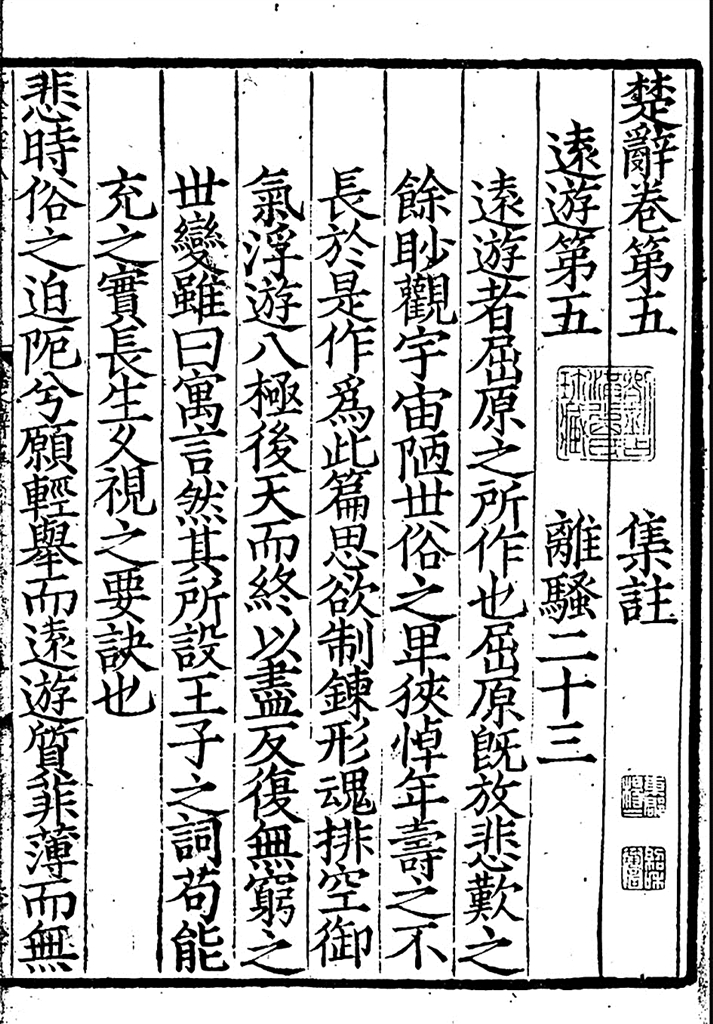 楚辭卷第五 集註
遠遊第五 離騷二十三
遠遊者屈原之所作也屈原既放悲歎之
餘眇觀宇宙陋世俗之卑狹悼年壽之不
長於是作爲此篇思欲制鍊形魂排空御
氣浮遊八極後天而終以盡反復無窮之
世變雖曰寓言然其所設王子之詞苟能
充之實長生久視之要訣也
悲時俗之迫阨兮願輕舉而遠遊質菲薄而無